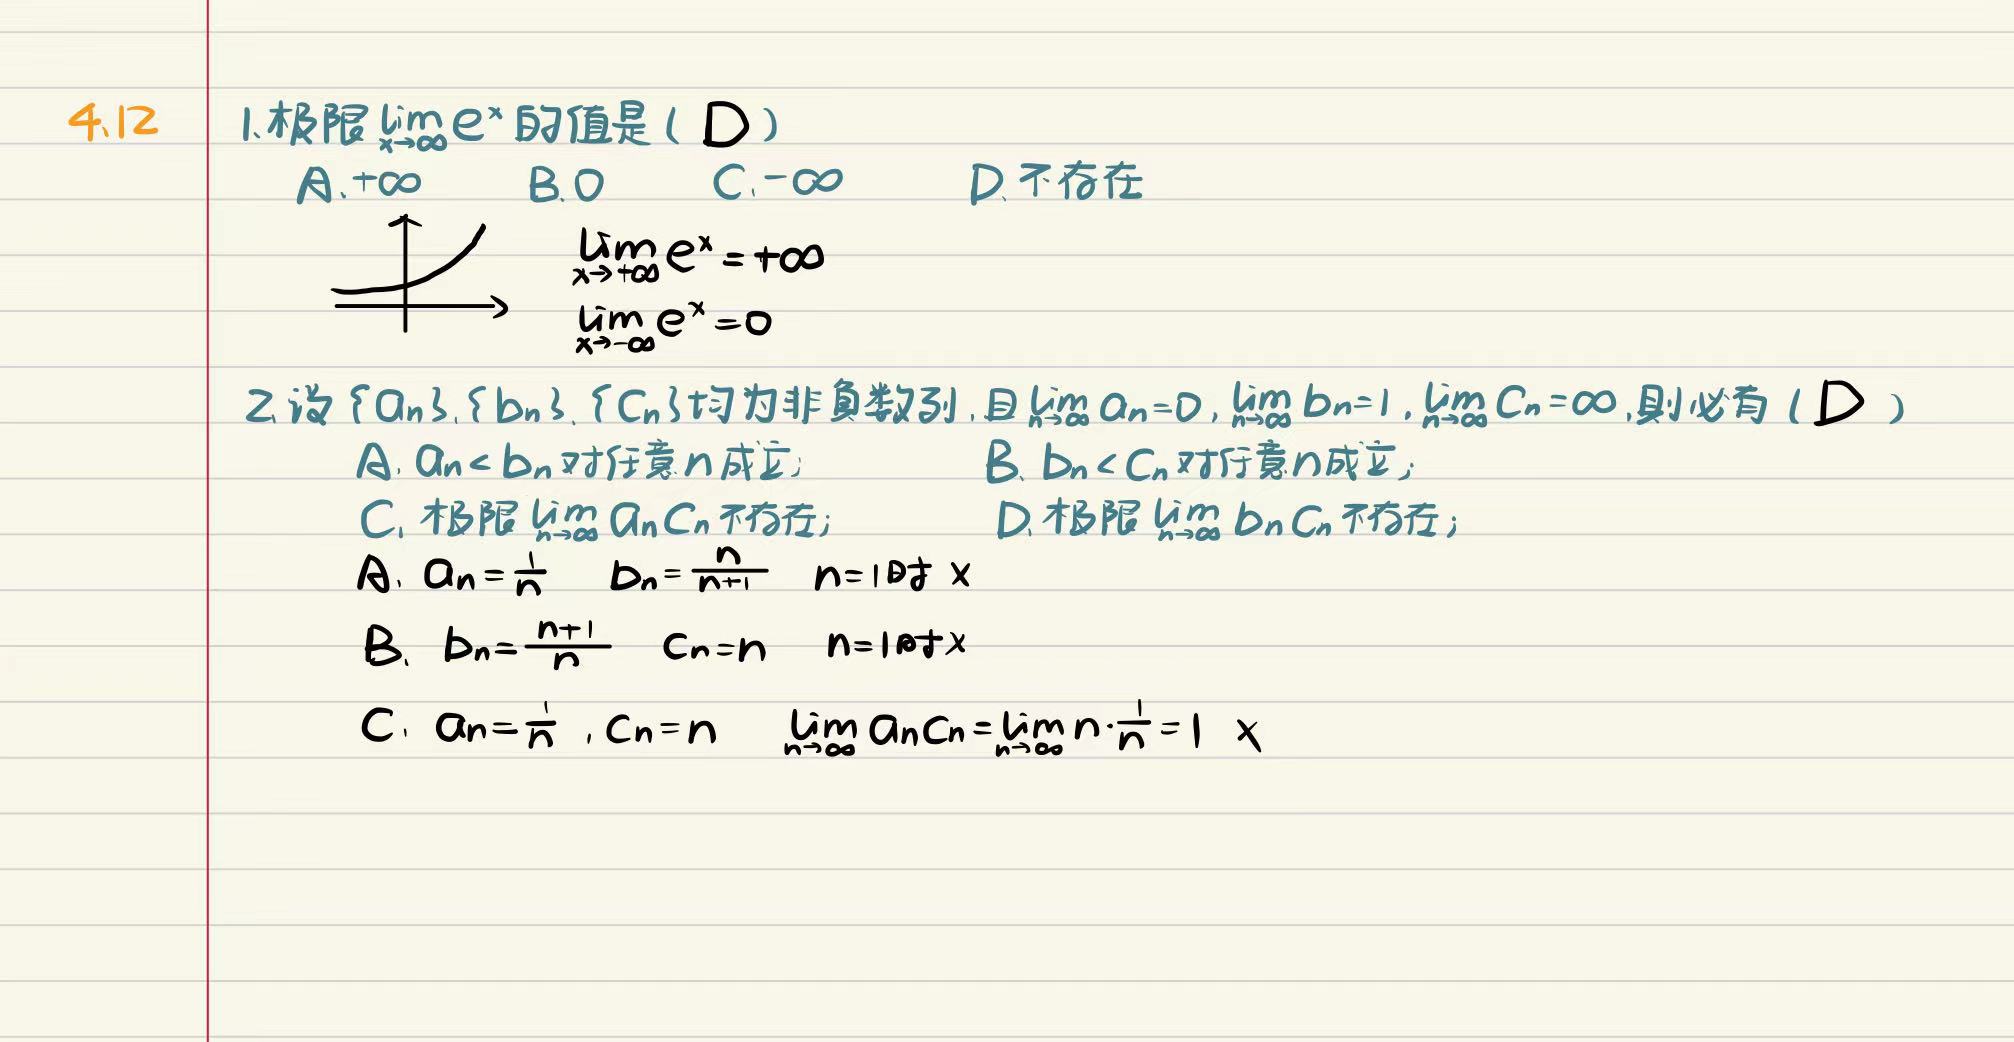 4.12
1.极限 lim x→∞ e^x 的值是 ( D )
A.+∞ B.0 C.-∞ D.不存在
lim x→+∞ e^x = +∞
lim x→-∞ e^x = 0
2.设{an}.{bn}.{Cn}均为非负数列,且 lim n→∞ an=0, lim n→∞ bn=1, lim n→∞ Cn=∞,则必有 ( D )
A. an<bn对任意n成立; B. bn<Cn对任意n成立;
C. 极限 lim n→∞ anCn不存在; D.极限 lim n→∞ bnCn不存在;
A. an=1/n bn=n/(n+1) n=1时 ×
B. bn=(n+1)/n Cn=n n=1时×
C. an=1/n , Cn=n lim n→∞ anCn = lim n→∞ n·1/n = 1 ×